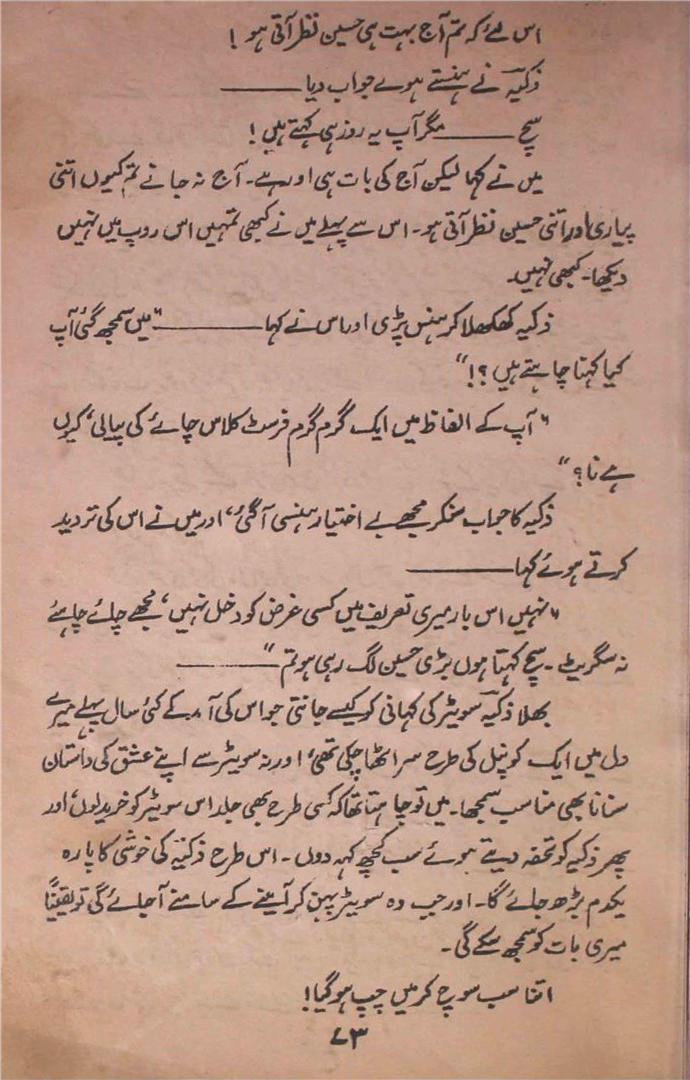 اس لئے کہ تم آج بہت ہی حسین نظر آتی ہو !
ذکیہ نے ہنستے ہوے جواب دیا ــــــــــــ
سچ ــــــــــــ مگر آپ یہ روز ہی کہتے ہیں !
میں نے کہا لیکن آج کی بات ہی اور ہے۔ آج نہ جانے تم کیوں اتنی
پیاری اور اتنی حسین نظر آتی ہو۔ اس سے پہلے میں نے کبھی تمہیں اس روپ میں نہیں
دیکھا۔ کبھی نہیں۔
ذکیہ کھکھلا کر ہنس پڑی اور اس نے کہا ــــــــــــ "میں سمجھ گئی آپ
کیا کہنا چاہتے ہیں ؟!"
"آپ کے الفاظ میں ایک گرم گرم فرسٹ کلاس چائے کی پیالی، کیوں
ہے نا ؟"
ذکیہ کا جواب سنکر مجھے بے اختیار ہنسی آ گئی، اور میں نے اس کی تردید
کرتے ہوئے کہا ــــــــــــ
"نہیں اس بار میری تعریف میں کسی غرض کو دخل نہیں، مجھے چائے چاہئے
نہ سگریٹ۔ سچ کہتا ہوں بڑی حسین لگ رہی ہو تم" ــــــــــــ
بھلا ذکیہ سویٹر کی کہانی کو کیسے جانتی جو اس کی آمد کے کئی سال پہلے میرے
دل میں ایک کونپل کی طرح سر اٹھا چکی تھی، اور نہ سویٹر سے اپنے عشق کی داستان
سنانا بھی مناسب سمجھا۔ میں تو چاہتا تھا کہ کسی طرح بھی جلد اس سویٹر کو خرید لوں، اور
پھر ذکیہ کو تحفہ دیتے ہوئے سب کچھ کہہ دوں۔ اس طرح ذکیہ کی خوشی کا پارہ
یکدم بڑھ جائے گا۔ اور جب وہ سویٹر پہن کر آئینے کے سامنے آ جائے گی تو یقیناً
میری بات کو سمجھ سکے گی۔
اتنا سب سوچ کر میں چپ ہو گیا!
۷۳